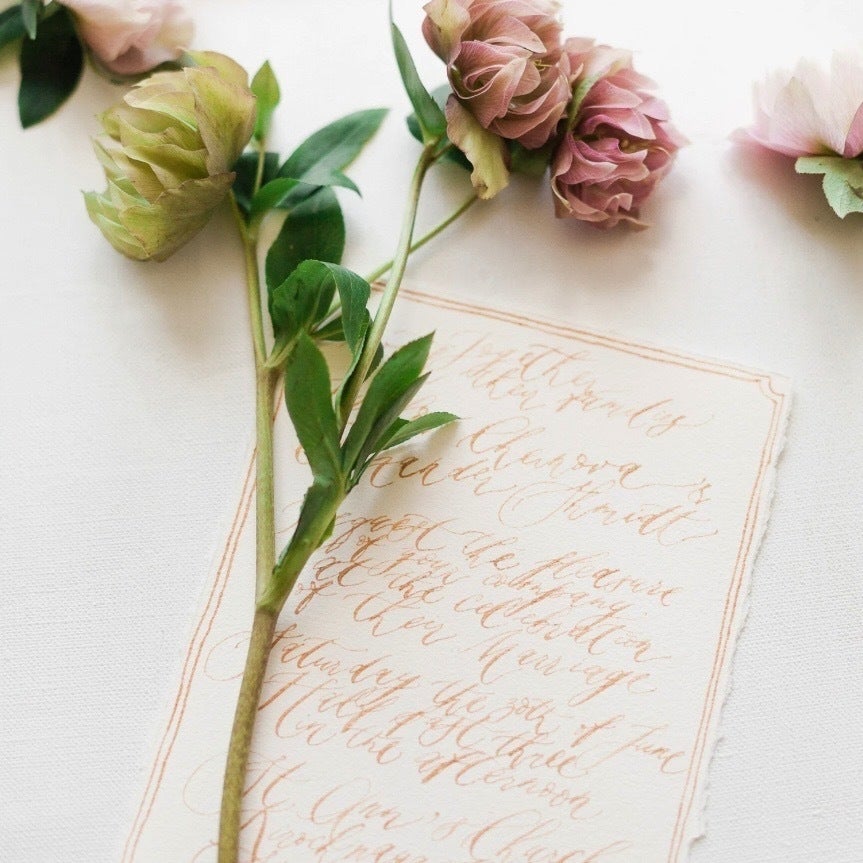 Together
their families
Chernova &
ander Shmidt
Request the Pleasure
of your company
at the celebration
of their Marriage
Saturday the 30th of June
Half past three
in the afternoon
St. Ann's Church